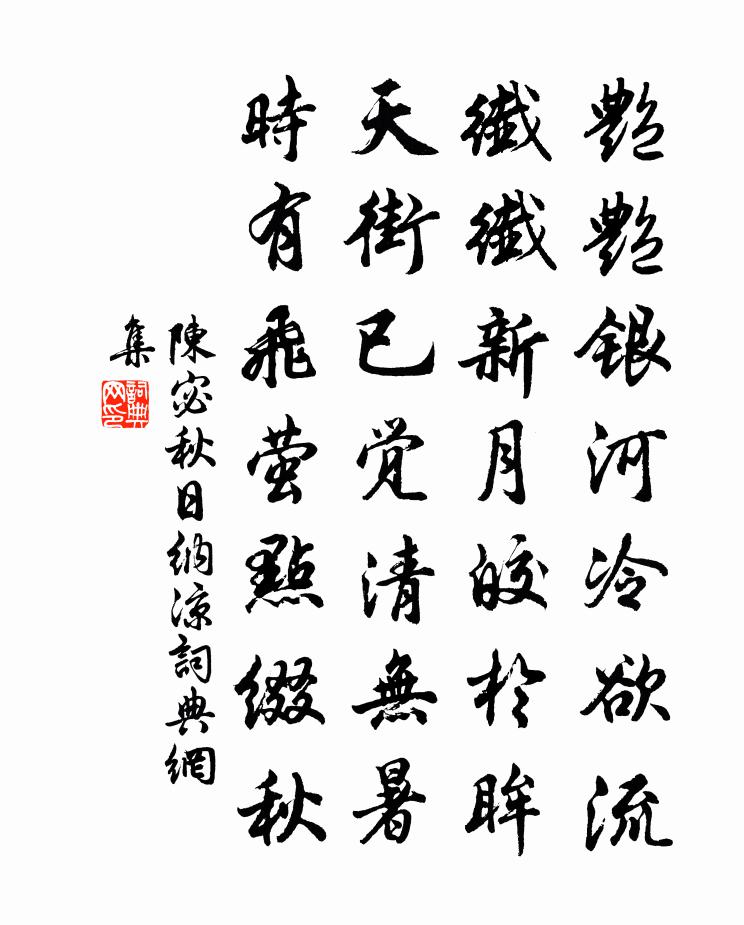 艷艷銀河冷欲流
纖纖新月皎於眸
天街已覺清無暑
時有飛萤點綴秋
陳宓秋日納凉詞典網
集
詞典網印